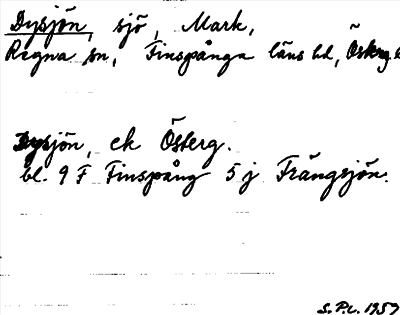 Dysjön, sjö, Mark,
Regna sn, Finspånga läns hd, Österg.
Dysjön, ek Österg.
bl. 9 F Finspång 5 j Frängsjön.
S.P.L. 1959